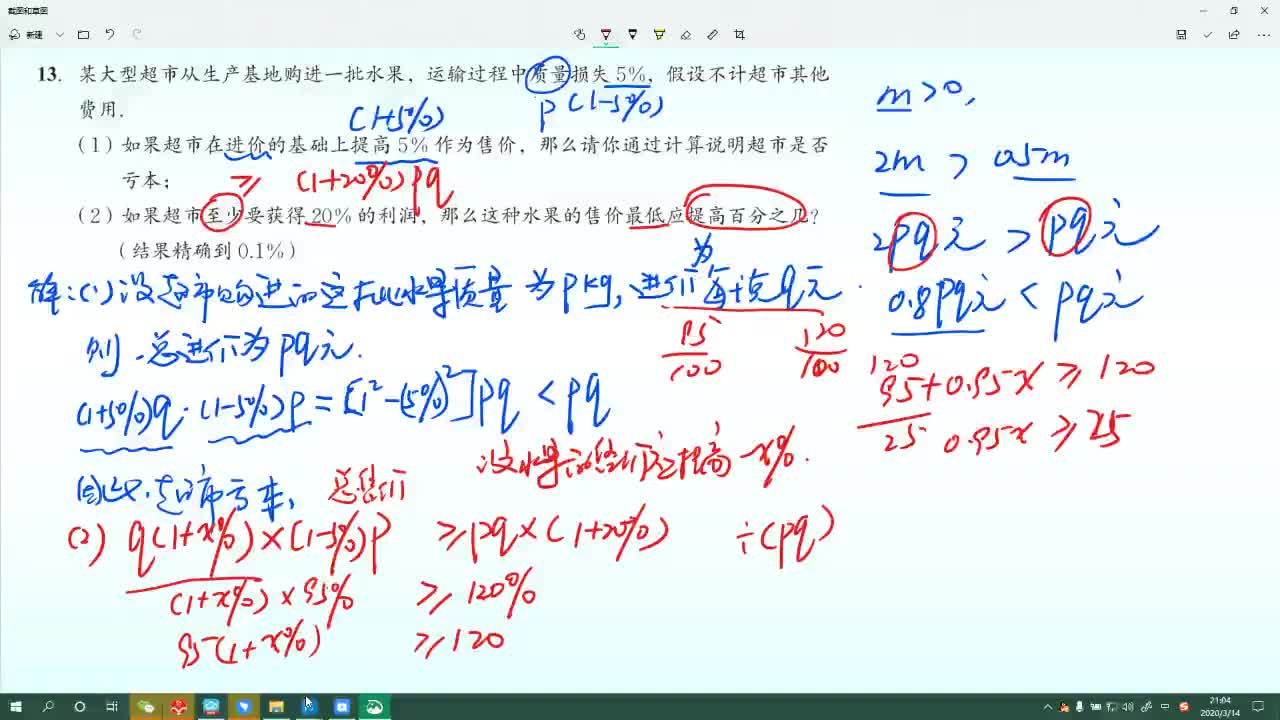 截图和草图
新建
13. 某大型超市从生产基地购进一批水果，运输过程中质量损失 5%，假设不计超市其他
费用.
(1+5%)
p(1-5%)
（1）如果超市在进价的基础上提高 5% 作为售价，那么请你通过计算说明超市是否
亏本；
≥ (1+20%)pq
（2）如果超市至少要获得 20% 的利润，那么这种水果的售价最低应提高百分之几？
（结果精确到 0.1%）
为
解：(1) 设超市购进的这批水果质量为pkg，进价每千克q元.
则.总进价为pq元.
(1+5%)q·(1-5%)p=[1²-(5%)²]pq<pq
因此.超市亏本.
总售价
设水果的售价应提高x%.
(2) q(1+x%)×(1-5%)p ≥pq×(1+20%) ÷(pq)
(1+x%)×95% ≥120%
95(1+x%) ≥120
m>0,
2m > 0.5m
2pq元 > pq元
0.8pq元 < pq元
95/100 120/100
120
95+0.95x≥120
25 0.95x≥25
21:04
2020/3/14